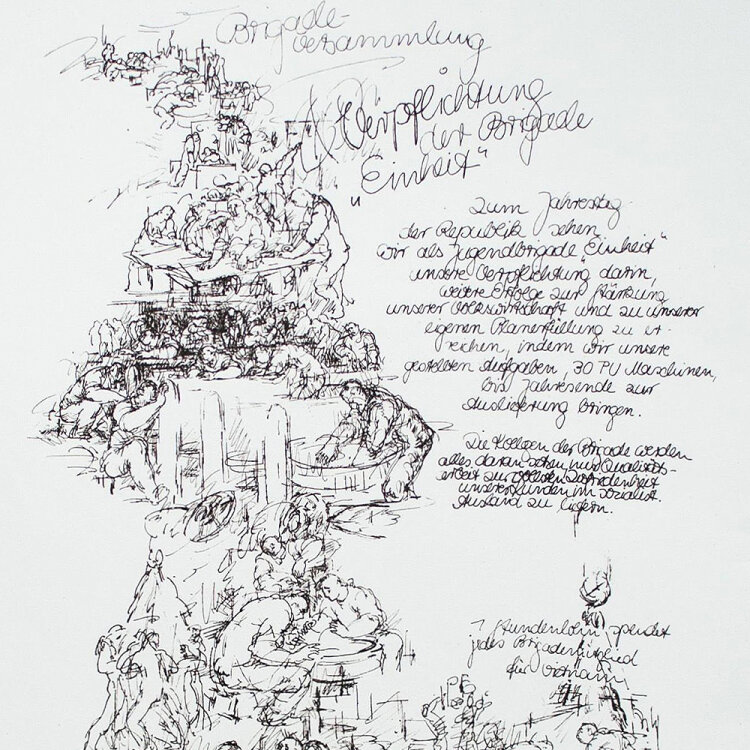 Brigade-
versammlung
"Verpflichtung
der Brigade
Einheit"
Zum Jahrestag
der Republik sehen
wir als Jugendbrigade "Einheit"
unsere Verpflichtung darin,
weitere Erfolge zur Stärkung
unserer Volkswirtschaft und zu unserer
eigenen Planerfüllung zu er-
reichen, indem wir unsere
gestellten Aufgaben, 30 PU Maschinen,
bis Jahresende zur
Auslieferung bringen.
Die Kollegen der Brigade werden
alles daran setzen, nur Qualitäts-
arbeit zur vollsten Zufriedenheit
unserer Kunden im sozialist.
Ausland zu liefern.
1 Stundenlohn spendet
jedes Brigademitglied
für Vietnam